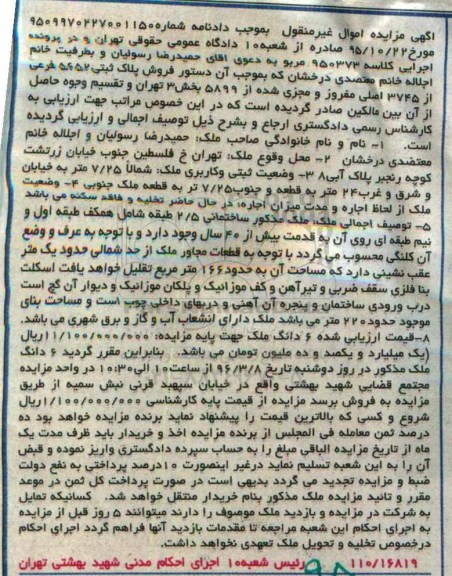 آگهی مزایده اموال غیرمنقول بموجب دادنامه شماره ۹۵۰۹۹۷۰۲۲۷۰۰۱۱۵۰
مورخ ۹۵/۱۰/۲۲ صادره از شعبه ۱۰ دادگاه عمومی حقوقی تهران و در پرونده
اجرایی کلاسه ۹۵۰۳۷۳ مربو به دعوی آقای حمیدرضا رسولیان و بطرفیت خانم
اجلاله خانم معتضدی درخشان که بموجب آن دستور فروش پلاک ثبتی ۵۶۵۲ فرعی
از ۳۷۴۵ اصلی مفروز و مجزی شده از ۵۸۹۹ بخش ۳ تهران و تقسیم وجوه حاصل
از آن بین مالکین صادر گردیده است که در این خصوص مراتب جهت ارزیابی به
کارشناس رسمی دادگستری ارجاع و بشرح ذیل توصیف اجمالی و ارزیابی گردیده
است. ۱- نام و نام خانوادگی صاحب ملک: حمیدرضا رسولیان و اجلاله خانم
معتضدی درخشان ۲- محل وقوع ملک: تهران خ فلسطین جنوب خیابان زرتشت
کوچه رنجبر پلاک آبی ۸ ۳- وضعیت ثبتی وکاربری ملک: شمالاً ۷/۲۵ متر به خیابان
و شرق و غرب ۲۴ متر به قطعه و جنوب ۷/۲۵ تر به قطعه ملک جنوبی ۴- وضعیت
ملک از لحاظ اجاره و مدت میزان اجاره: در حال حاضر تخلیه و فاقد سکنه می باشد
۵- توصیف اجمالی ملک: ملک مذکور ساختمانی ۲/۵ طبقه شامل همکف طبقه اول و
نیم طبقه ای روی آن به قدمت بیش از ۴۰ سال وجود دارد و با توجه به عرف و وضع
آن کلنگی محسوب می گردد با توجه به قطعات مجاور ملک از حد شمالی حدود یک متر
عقب نشینی دارد که مساحت آن به حدود ۱۶۶ متر مربع تقلیل خواهد یافت اسکلت
بنا فلزی سقف ضربی و تیرآهن و کف موزائیک و پلکان موزائیک و دیوار آن گچ است
درب ورودی ساختمان و پنجره آن آهنی و دربهای داخلی چوب است و مساحت بنای
موجود حدود ۲۲۰ متر می باشد ملک دارای انشعاب آب و گاز و برق شهری می باشد
۸-قیمت ارزیابی شده ۶ دانگ ملک جهت پایه مزایده: ۱۱/۱۰۰/۰۰۰/۰۰۰ریال
(یک میلیارد و یکصد و ده ملیون تومان می باشد. بنابراین مقرر گردید ۶ دانگ
ملک مذکور در روز دوشنبه تاریخ ۹۶/۳/۸ از ساعت ۱۰ الی ۱۰:۳۰ در واحد مزایده
مجتمع قضایی شهید بهشتی واقع در خیابان سپهبد قرنی نبش سمیه از طریق
مزایده به فروش برسد مزایده از قیمت پایه کارشناسی ۱۱/۱۰۰/۰۰۰/۰۰۰ریال
شروع و کسی که بالاترین قیمت را پیشنهاد نماید برنده مزایده خواهد بود ده
درصد ثمن معامله فی المجلس از برنده مزایده اخذ و خریدار باید ظرف مدت یک
ماه از تاریخ مزایده الباقی مبلغ را به حساب سپرده دادگستری واریز نموده و قبض
آن را به این شعبه تسلیم نماید درغیر اینصورت ۱۰درصد پرداختی به نفع دولت
ضبط و مزایده تجدید می گردد بدیهی است در صورت پرداخت کل ثمن در موعد
مقرر و تائید مزایده ملک مذکور بنام خریدار منتقل خواهد شد. کسانیکه تمایل
به شرکت در مزایده و بازدید ملک موصوف را دارند میتوانند ۵ روز قبل از مزایده
به اجرای احکام این شعبه مراجعه تا مقدمات بازدید آنها فراهم گردد اجرای احکام
درخصوص تخلیه و تحویل ملک تعهدی نخواهد داشت.
۱۱۰/۱۶۸۱۹ رئیس شعبه ۱۰ اجرای احکام مدنی شهید بهشتی تهران